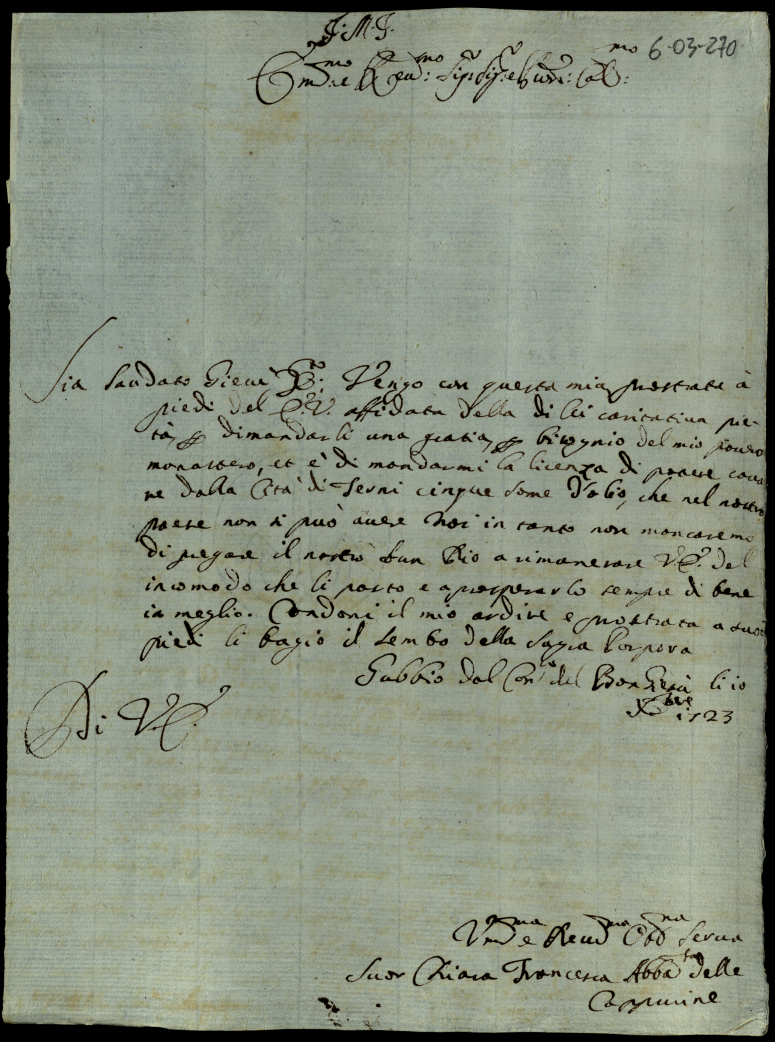 J: M: J:
6-03-270
Em:mo e Reud:mo Sig:r Sig:re
Sia Laudato Giesù Vengo con questa mia prostrata à
piedi del E:V: affidata della di lei caritativa pie-
tà, p dimandarli una gratia, p bisognio del mio pouero
monastero, et è di mandarmi la licenza di potere caua-
re dalla Cità di Terni cinque some d'olio, che nel nostro
paese non si può auere Noi in tanto non mancaremo
di pregare il nostro Bun Dio a rimunerare V:E: del
incomodo che li porto e a prosperarlo sempre di bene
in meglio. Condoni il mio ardire e prostrata a suoi
piedi li bagio il lembo della sagra Porpora
Gubbio dal Con:to del Bon Giesù li 10
Xbre 1723
Di V:E:
Vm:ma e Reud:ma Obb:ma Serua
Suor Chiara Francesca Abba:ssa delle
Cappucine